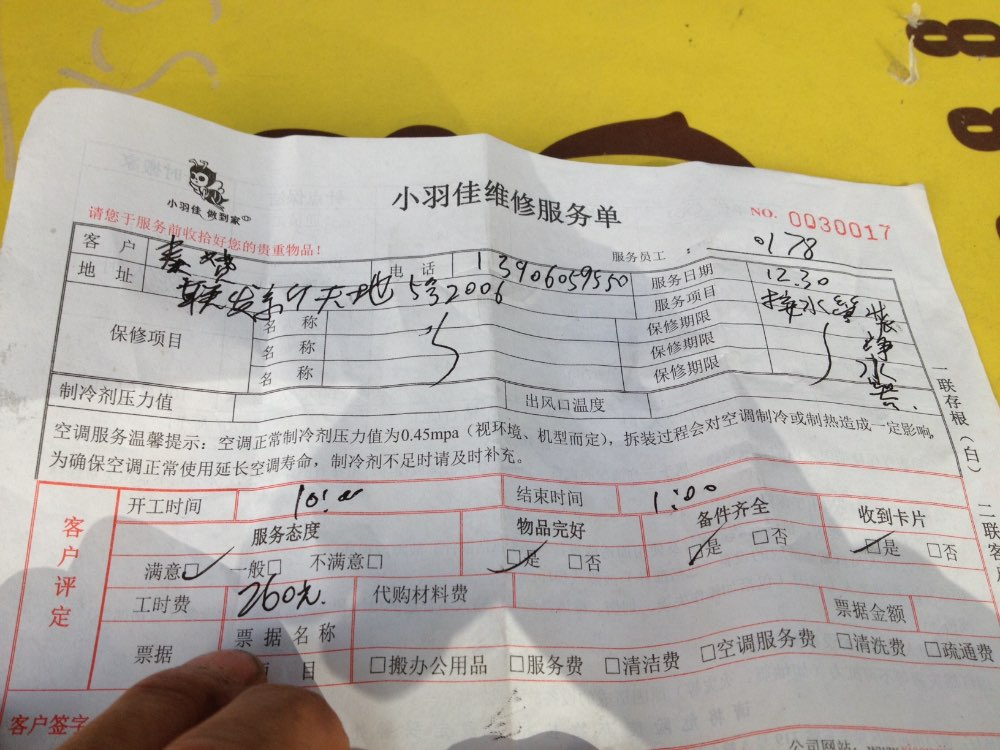 小羽佳 做到家
小羽佳维修服务单
NO. 0030017
请您于服务前收拾好您的贵重物品!
服务员工 : 0178
客户 电话 13906059550 服务日期 12.30
地址 联发 天地 5号2006 服务项目 接水管 装净水器.
保修项目 名称 保修期限
名称 保修期限
名称 保修期限
制冷剂压力值 出风口温度
空调服务温馨提示:空调正常制冷剂压力值为0.45mpa(视环境、机型而定),拆装过程会对空调制冷或制热造成一定影响,
为确保空调正常使用延长空调寿命,制冷剂不足时请及时补充。
一联存根(白)
二联客
客户评定
开工时间 10:00 结束时间 1:00
服务态度 物品完好 备件齐全 收到卡片
满意□ 一般□ 不满意□ □是 □否 □是 □否 □是 □否
工时费 260元. 代购材料费 票据金额
票据 票据名称
项目 □搬办公用品 □服务费 □清洁费 □空调服务费 □清洗费 □疏通费
客户签字
公司网站: